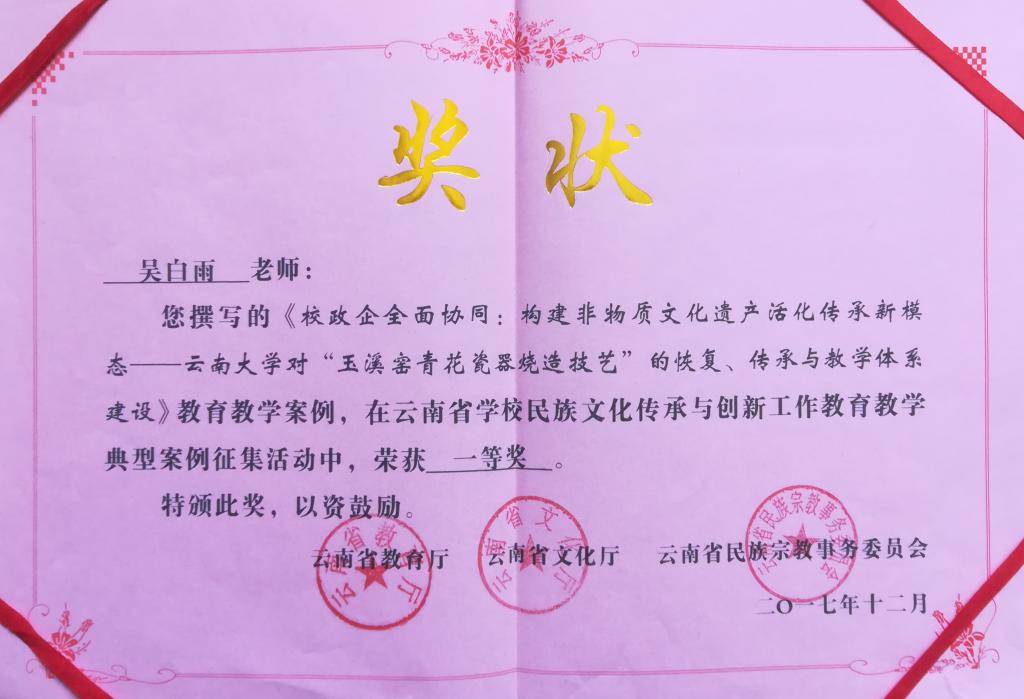 奖状
吴白雨 老师：
您撰写的《校政企全面协同：构建非物质文化遗产活化传承新模
态——云南大学对“玉溪窑青花瓷器烧造技艺”的恢复、传承与教学体系
建设》教育教学案例，在云南省学校民族文化传承与创新工作教育教学
典型案例征集活动中，荣获 一等奖 。
特颁此奖，以资鼓励。
云南省教育厅 云南省文化厅 云南省民族宗教事务委员会
二〇一七年十二月
云南省教育厅
云南省文化厅
云南省民族宗教事务委员会